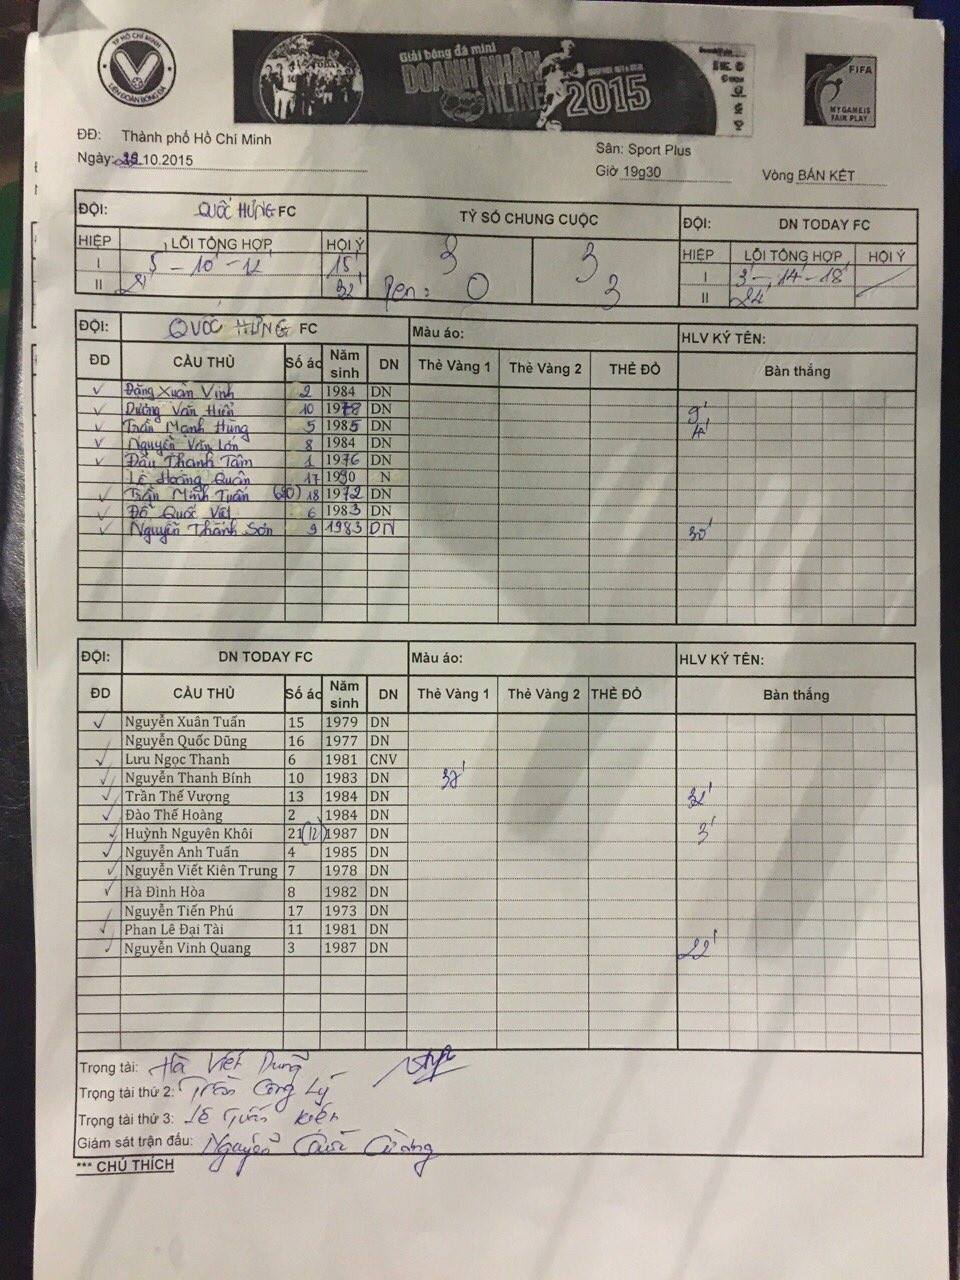 TP HỒ CHÍ MINH
LIÊN ĐOÀN BÓNG ĐÁ
Giải bóng đá mini
DOANH NHÂN
ONLINE 2015
FIFA
MY GAME IS
FAIR PLAY
ĐĐ: Thành phố Hồ Chí Minh
Ngày: .10.2015
Sân: Sport Plus
Giờ 19g30
Vòng BÁN KẾT
ĐỘI: QUỐC HƯNG FC TỶ SỐ CHUNG CUỘC ĐỘI: DN TODAY FC
HIỆP LỖI TỔNG HỢP HỘI Ý 3 3 HIỆP LỖI TỔNG HỢP HỘI Ý
I 5' - 10' - 12' 15' I 3' - 14' - 18'
II 21' 32' Pen: 0 3 II 24'
ĐỘI: QUỐC HƯNG FC Màu áo: HLV KÝ TÊN:
ĐD CẦU THỦ Số áo Năm sinh DN Thẻ Vàng 1 Thẻ Vàng 2 THẺ ĐỎ Bàn thắng
✓ Đặng Xuân Vinh 2 1984 DN
✓ Dương Văn Hiển 10 1978 DN 9'
✓ Trần Mạnh Hùng 5 1985 DN
✓ Nguyễn Văn Lớn 8 1984 DN
✓ Đậu Thanh Tâm 1 1976 DN
Lê Hoàng Quân 17 1990 N
✓ Trần Minh Tuấn 18 1972 DN
✓ Đỗ Quốc Việt 6 1983 DN
✓ Nguyễn Thành Sơn 9 1983 DN 30'
ĐỘI: DN TODAY FC Màu áo: HLV KÝ TÊN:
ĐD CẦU THỦ Số áo Năm sinh DN Thẻ Vàng 1 Thẻ Vàng 2 THẺ ĐỎ Bàn thắng
✓ Nguyễn Xuân Tuấn 15 1979 DN
Nguyễn Quốc Dũng 16 1977 DN
✓ Lưu Ngọc Thanh 6 1981 CNV
✓ Nguyễn Thanh Bính 10 1983 DN 38'
✓ Trần Thế Vượng 13 1984 DN 32'
✓ Đào Thế Hoàng 2 1984 DN
✓ Huỳnh Nguyên Khôi 21 (12) 1987 DN 3'
✓ Nguyễn Anh Tuấn 4 1985 DN
✓ Nguyễn Viết Kiên Trung 7 1978 DN
✓ Hà Đình Hòa 8 1982 DN
Nguyễn Tiến Phú 17 1973 DN
✓ Phan Lê Đại Tài 11 1981 DN
✓ Nguyễn Vinh Quang 3 1987 DN 22'
Trọng tài: Hà Viết Dũng
Trọng tài thứ 2: Trần Công Lý
Trọng tài thứ 3: Lê Tuấn Kiên
Giám sát trận đấu: Nguyễn Quốc Cường
*** CHÚ THÍCH